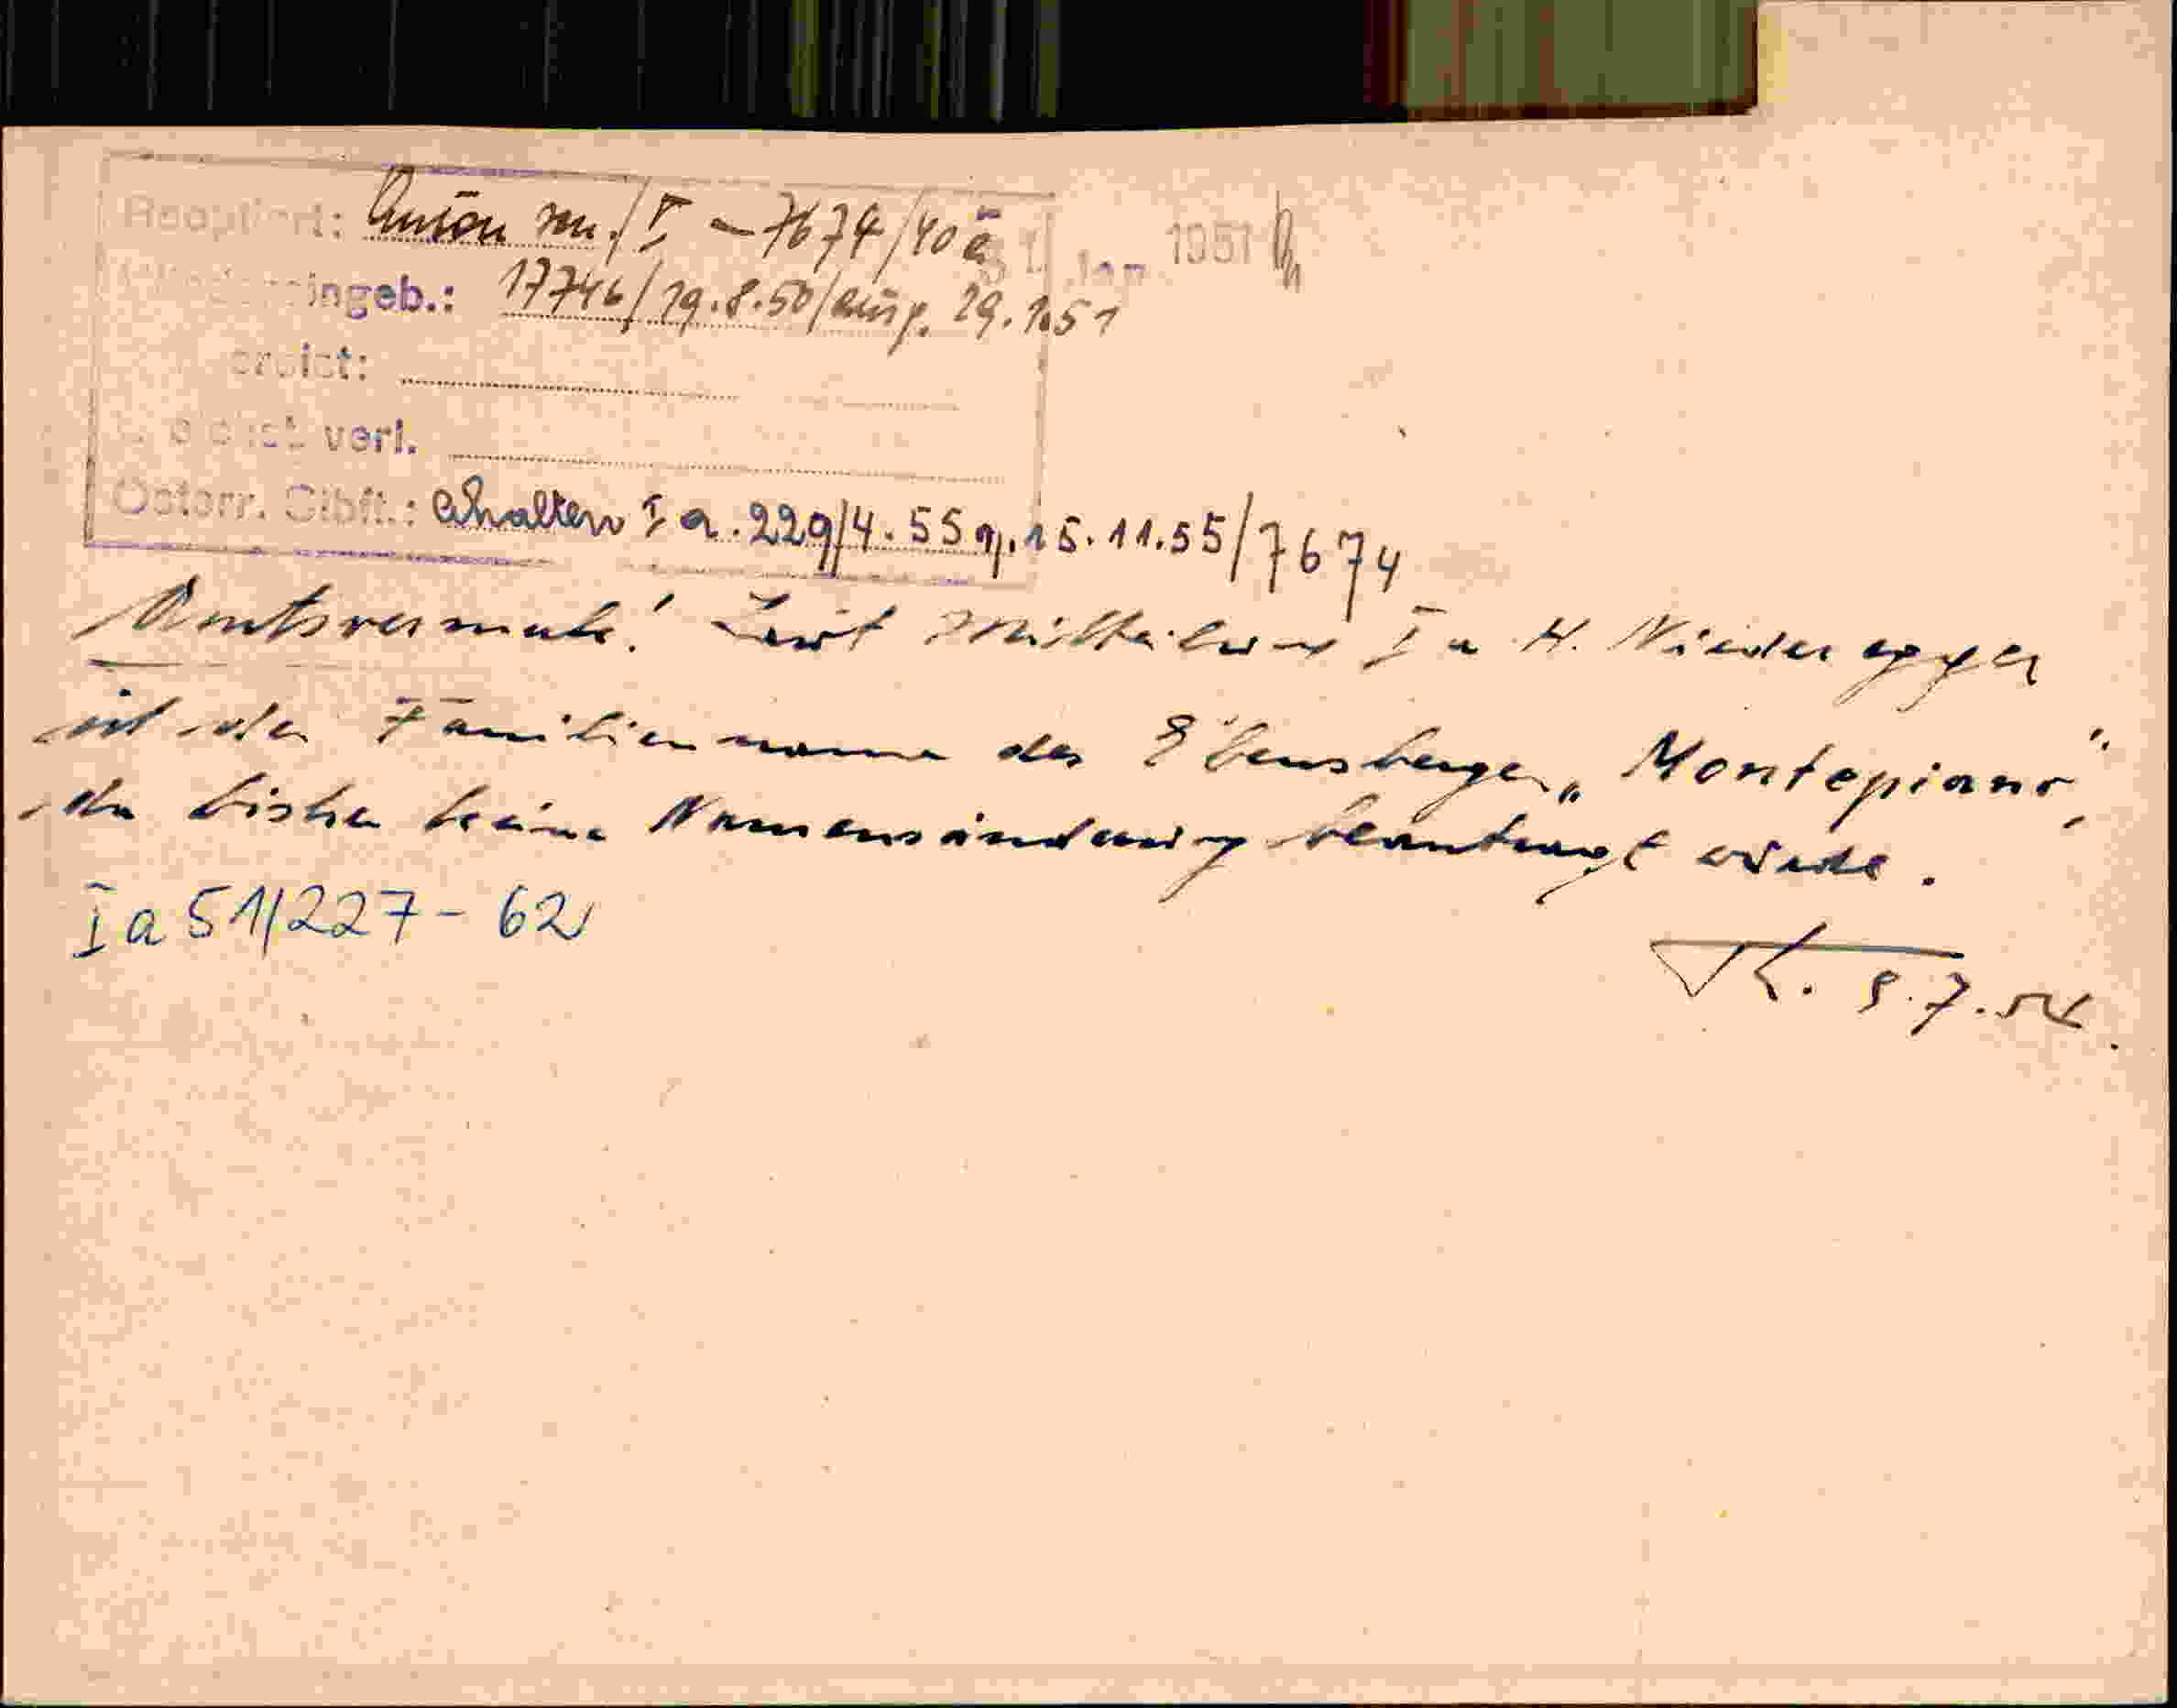 Reoptiert: Anton m./I - 7674/40 a
31. Jan. 1951
eingeb.: 17746/19.8.50/ausg. 29.1.51
erolet:
verl.
Österr. Stbft.: erhalten I a. 229/4.55 v. 15.11.55/7674
Amtsvermerk! Laut Mitteilung I a H. Niederegger
ist der Familienname des Ebensberger „Montepiano",
da bisher keine Namensänderung beantragt wurde.
I a 51/227 - 62
5.7.54.